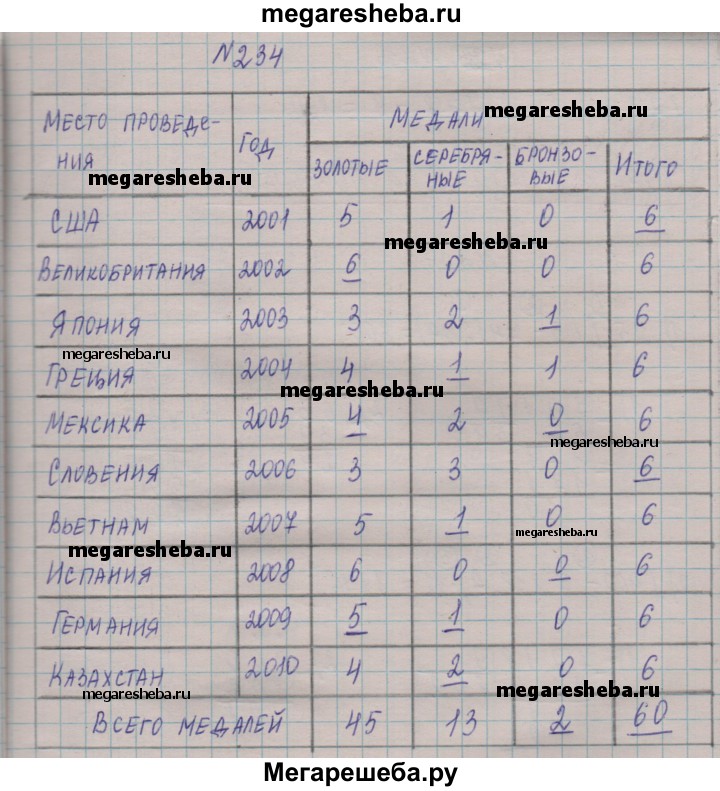 megaresheba.ru
№234
МЕСТО ПРОВЕДЕ- ГОД МЕДАЛИ megaresheba.ru
НИЯ ЗОЛОТЫЕ СЕРЕБРЯ- БРОНЗО- ИТОГО
megaresheba.ru НЫЕ ВЫЕ
США 2001 5 1 0 6
megaresheba.ru
ВЕЛИКОБРИТАНИЯ 2002 6 0 0 6
ЯПОНИЯ 2003 3 2 1 6
megaresheba.ru
ГРЕЦИЯ 2004 4 1 1 6
megaresheba.ru
МЕКСИКА 2005 4 2 0 6
megaresheba.ru
СЛОВЕНИЯ 2006 3 3 0 6
ВЬЕТНАМ 2007 5 1 0 6
megaresheba.ru megaresheba.ru
ИСПАНИЯ 2008 6 0 0 6
ГЕРМАНИЯ 2009 5 1 0 6
КАЗАХСТАН 2010 4 2 0 6
megaresheba.ru megaresheba.ru
ВСЕГО МЕДАЛЕЙ 45 13 2 60
Мегарешеба.ру